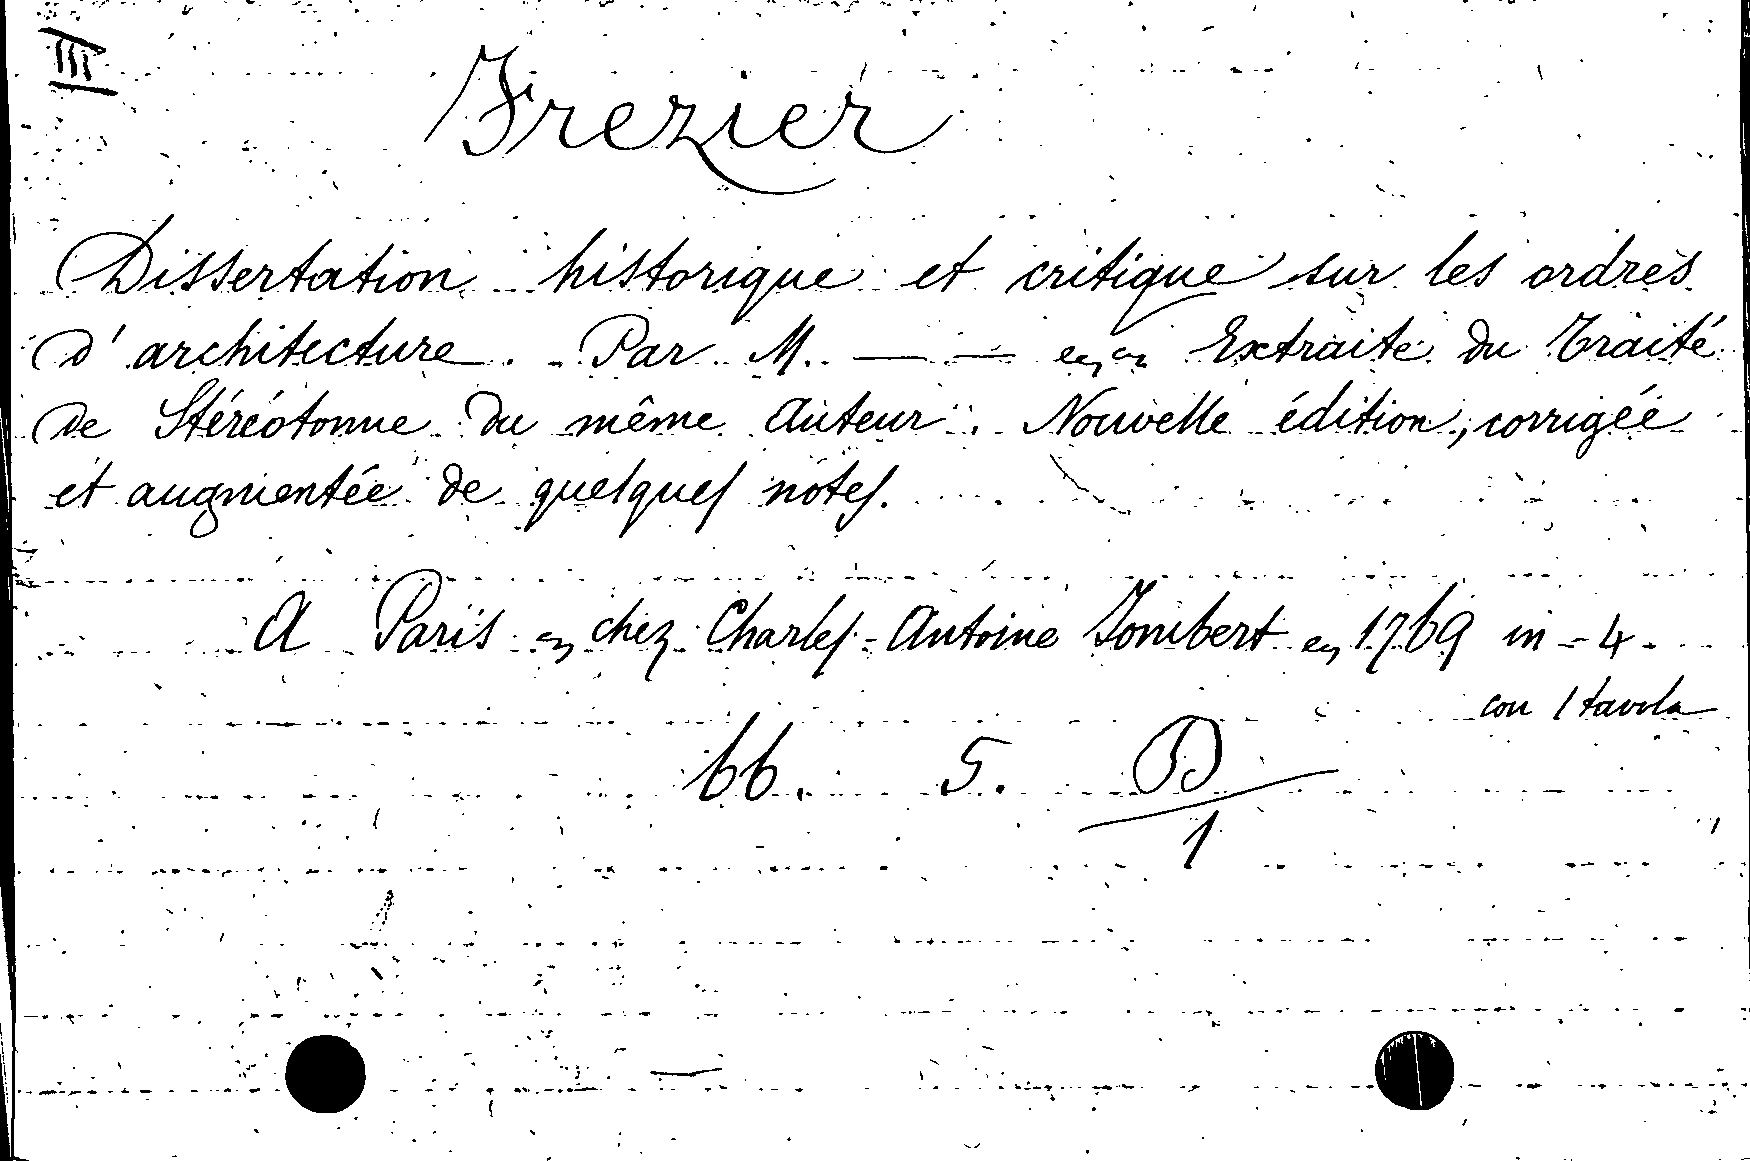 III
Frezier
Dissertation historique et critique sur les ordres
d'architecture. - Par M. — — Extraite du Traité
de Stéréotomie du même Auteur. Nouvelle édition, corrigée
et augmentée de quelques notes.
A Paris chez Charles-Antoine Jombert 1769 in-4.
con 1 tavola
66. 5. D
1